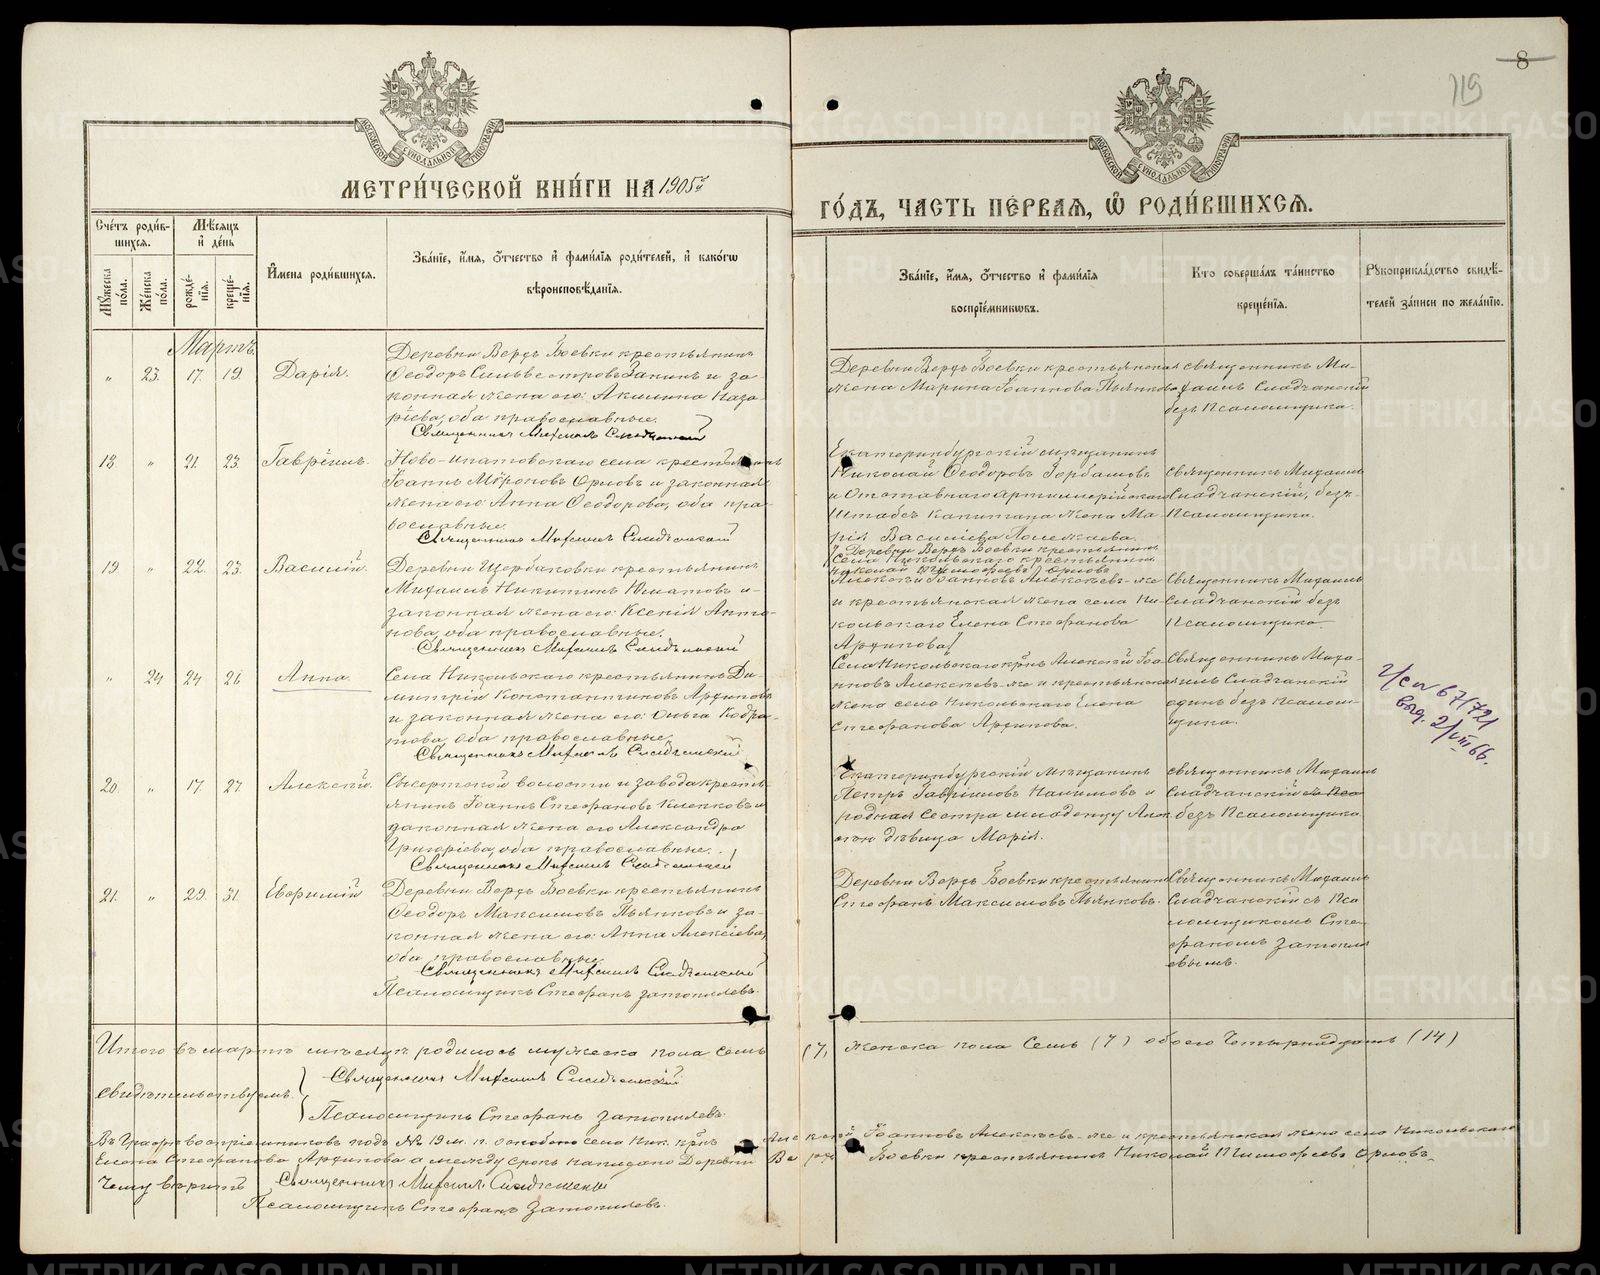 8
119
МОСКОВСКОЙ СѴНОДАЛЬНОЙ ТИПОГРАФІИ
МОСКОВСКОЙ СѴНОДАЛЬНОЙ ТИПОГРАФІИ
МЕТРИ́ЧЕСКОЙ КНИ́ГИ НА 1905й
ГО́ДЪ, ЧАСТЬ ПЕ́РВАЯ, Ѽ РОДИ́ВШИХСЯ.
Сче́тъ роди́в-
шихся.
Мѣ́сяцъ
и҆ де́нь
Мꙋ́жеска по́ла.
Же́нска по́ла.
рожде́-
нїя.
креще́-
нїя.
И҆мена роди́вшихся.
Зва́нїе, и҆́мя, ѻ҆́тчество и҆ фами́лїя роди́телей, и҆ како́гѡ
вѣроисповѣ́данїя.
Зва́нїе, и҆́мя, ѻ҆́тчество и҆ фами́лїя
воспрїе́мникѡвъ.
Кто̀ соверша́лъ та́инство
креще́нїя.
Рꙋкоприкла́дство свидѣ́-
телей за́писи по жела́нїю.
Мартъ.
„ 23. 17. 19. Дарія.
Деревни Верхъ Боевки крестьянинъ
Ѳеодоръ Сильвестровъ Занинъ и за
конная жена его: Акилина Наза-
ріева, оба православные.
Священникъ Михаилъ Сладчанскій
Деревни Верхъ Боевки крестьянская
жена Марина Іоаннова Пьянкова
священникъ Ми-
хаилъ Сладчанскій
безъ Псаломщика.
18. „ 21. 23. Гавріилъ.
Ново-ипатовскаго села крестьянинъ
Іоаннъ Мѵроновъ Орловъ и законная
жена его: Анна Ѳеодорова, оба пра-
вославные.
Священникъ Михаилъ Сладчанскій
Екатеринбургскій мѣщанинъ
Николай Ѳеодоровъ Горбашовъ
и Отставнаго Артиллерійскаго
Штабсъ Капитана жена Ма-
рія Василіева
священникъ Михаилъ
Сладчанскій, безъ-
Псаломщика.
19. „ 22. 23. Василій.
Деревни Щербаковки крестьянинъ
Михаилъ Никитинъ Юшатовъ и
законная жена его: Ксенія Анто-
нова, оба православные.
Священникъ Михаилъ Сладчанскій
Деревни Верхъ Боевки крестьянинъ
Села Никольскаго крестьянинъ
Николай Тимофеевъ Орловъ
Алексѣй Іоанновъ Алексѣевъ-же
и крестьянская жена села Ни-
кольскаго Елена Стефанова
Архипова
Священникъ Михаилъ
Сладчанскій безъ
Псаломщика
„ 24 24 26 Анна
Села Никольскаго крестьянинъ Ди-
митрій Константиновъ Архиповъ
и законная жена его: Ольга Кодра-
това, оба православные.
Священникъ Михаилъ Сладчанскій
Села Никольскаго крнъ Алексѣй Іоа-
нновъ Алексѣевъ-же и крестьянская
жена села Никольскаго Елена
Стефанова Архипова.
Священникъ Миха-
илъ Сладчанскій
одинъ безъ Псалом-
щика.
67/721
выд. 2/VIII 66.
20. „ 17. 27. Алексѣй.
Сысертской волости и завода кресть-
янинъ Іоаннъ Стефановъ Клепковъ и
законная жена его Александра
Григоріева, оба православные.
Священникъ Михаилъ Сладчанскій
Екатеринбургскій мѣщанинъ
Петръ Гавріиловъ Налимовъ и
родная Сестра младенцу Алек-
сѣю дѣвица Марія.
священникъ Михаилъ
Сладчанскій съ Пса
безъ Псаломщика
21. „ 29. 31. Евфимій
Деревни Верхъ Боевки крестьянинъ
Ѳеодоръ Максимовъ Пьянковъ и за-
конная жена его: Анна Алексіева,
оба православные
Священникъ Михаилъ Сладчанскій
Псаломщикъ Стефанъ Затопляевъ.
Деревни Верхъ Боевки крестьянинъ
Стефанъ Максимовъ Пьянковъ.
Священникъ Михаилъ
Сладчанскій съ Пса
ломщикомъ Сте-
фаномъ Затопля
евымъ.
Итого въ мартѣ мѣсяцѣ родилось мужеска пола семь (7) женска пола Семь (7) обоего Четырнадцать (14)
свидѣтельствуемъ.
Священникъ Михаилъ Сладчанскій
Псаломщикъ Стефанъ Затопляевъ.
Въ Графѣ воспріемниковъ подъ № 19 м. п. села Ник. крнъ Алексѣй Іоанновъ Алексѣевъ-же и крестьянская жена села Никольскаго
Елена Стефанова Архипова а между строкъ написано Деревни Верхъ Боевки крестьянинъ Николай Тимофеевъ Орловъ
Чему вѣрить Священникъ Михаилъ Сладчанскій
Псаломщикъ Стефанъ Затопляевъ.
METRIKI.GASO-URAL.RU